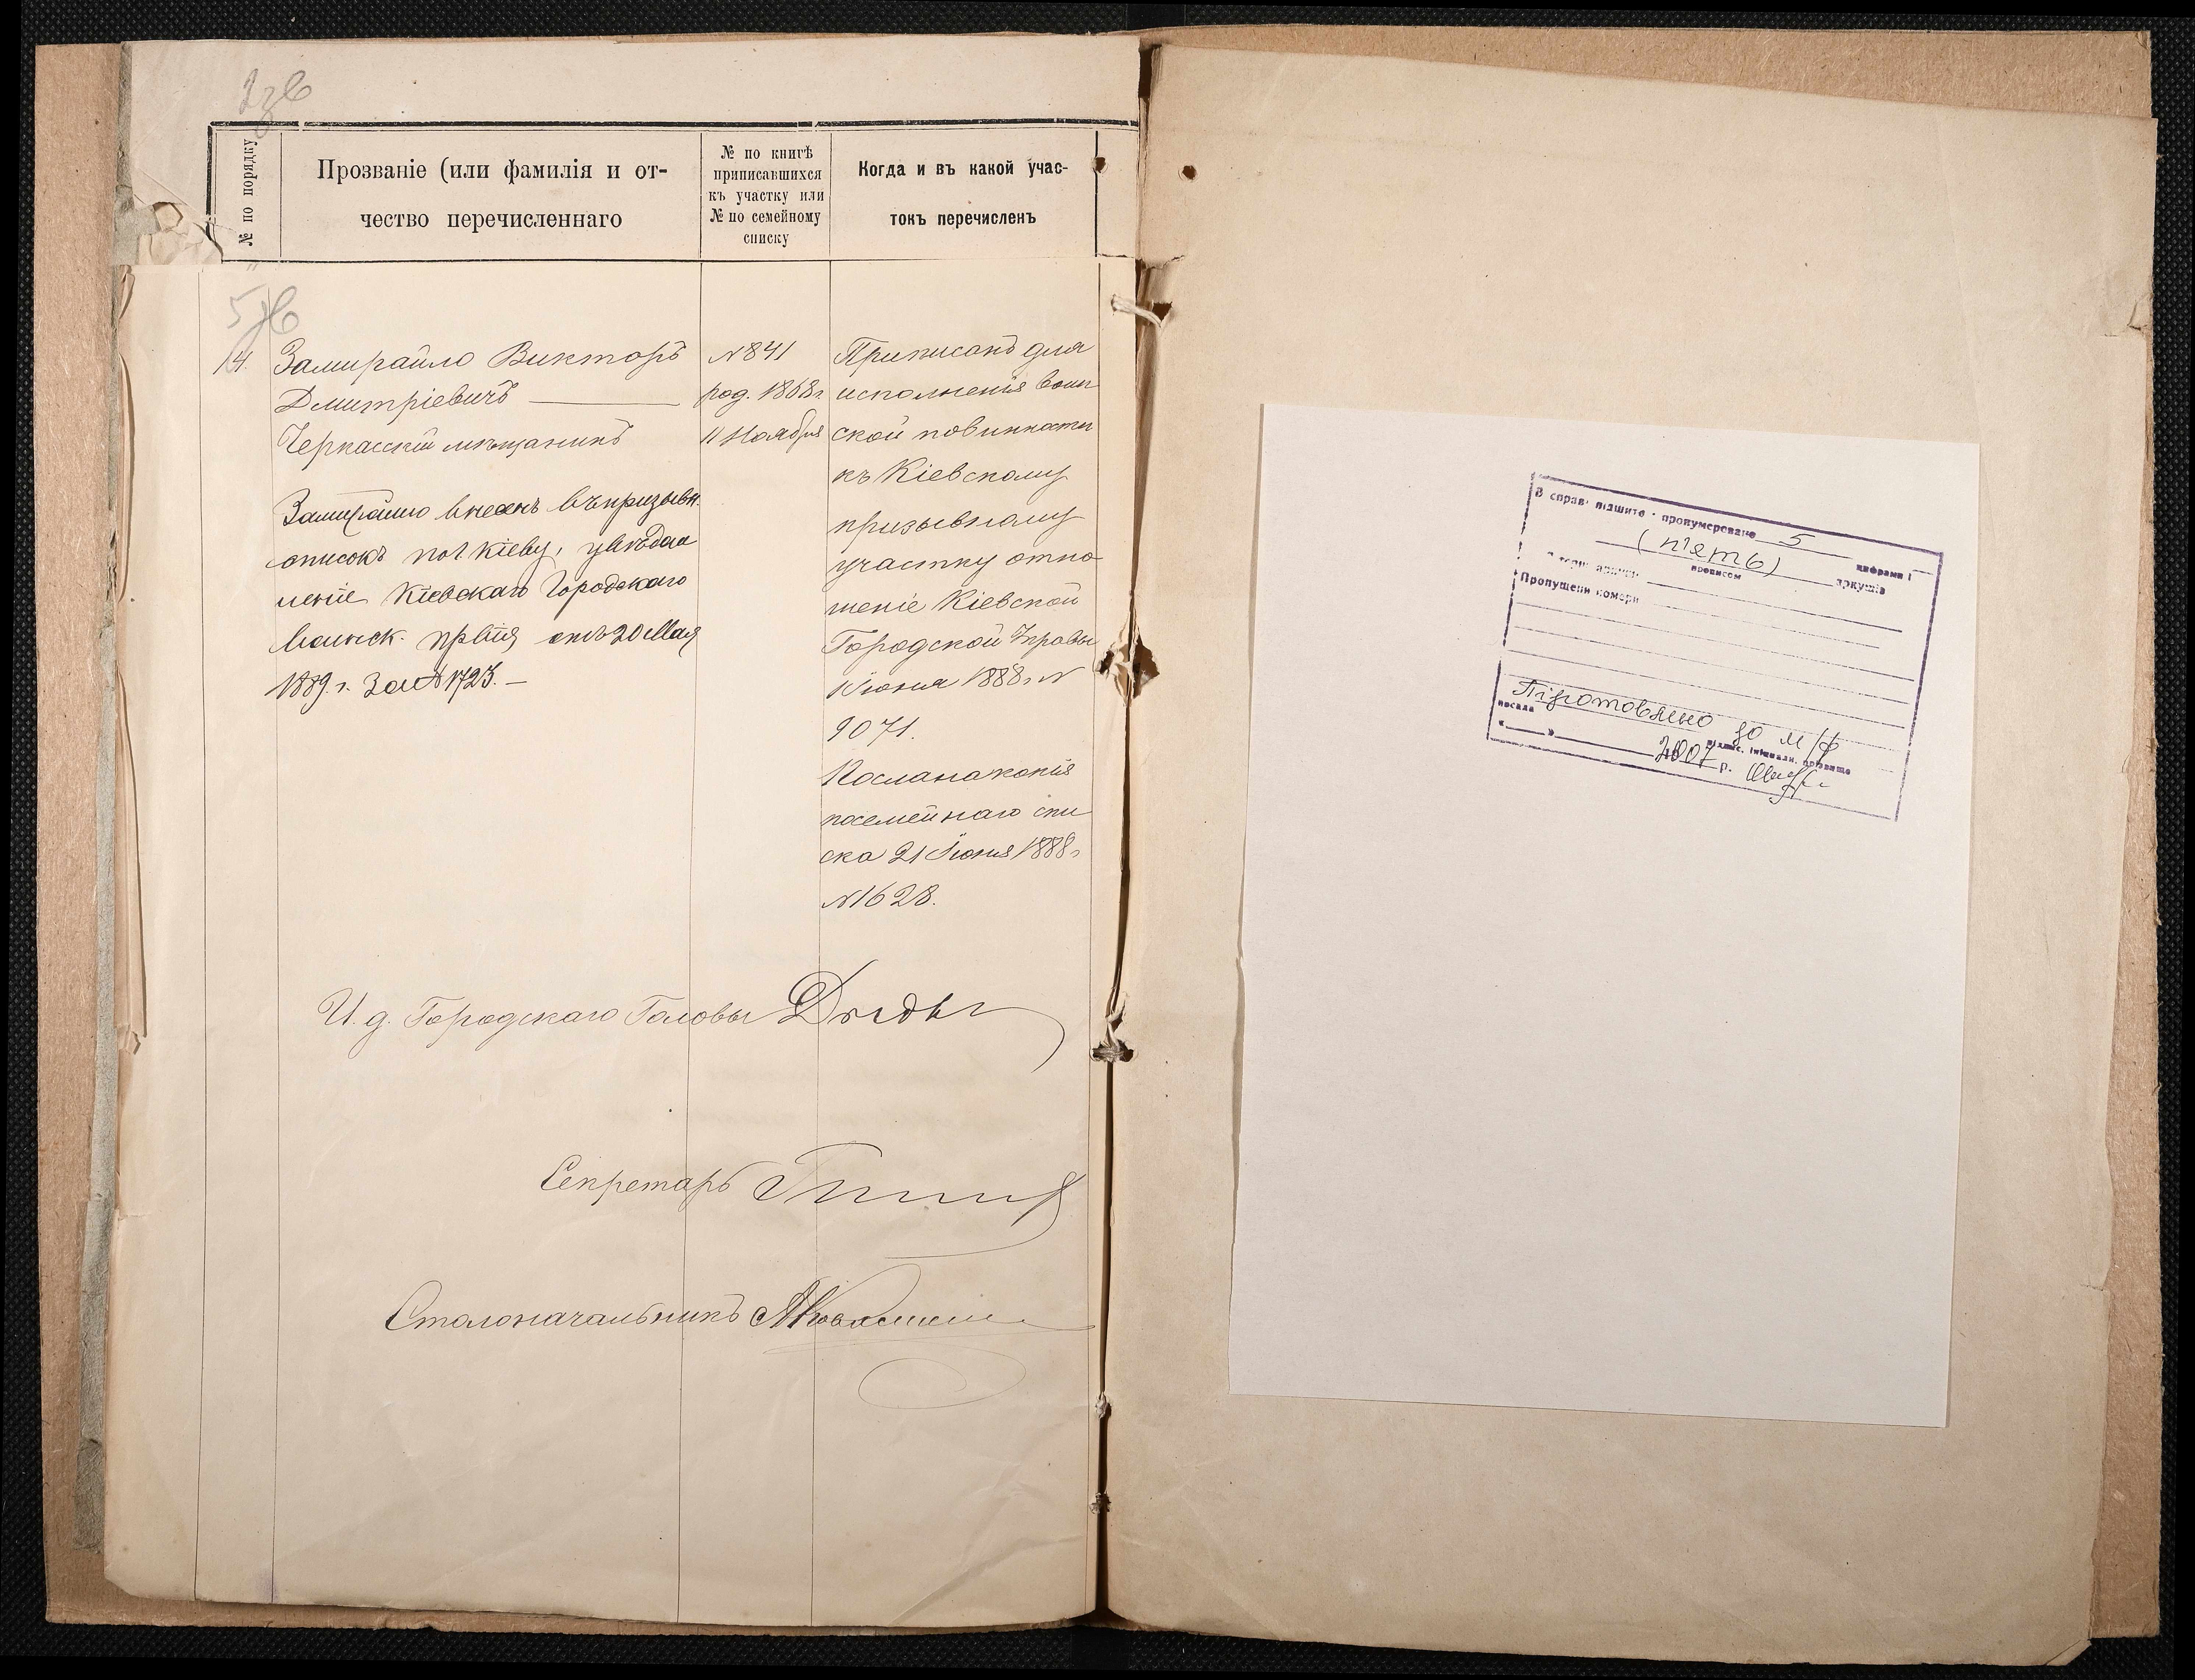 2зв
№ по порядку
Прозваніе (или фамилія и от-
чество перечисленнаго
№ по книгѣ
приписавшихся
къ участку или
№ по семейному
списку
Когда и въ какой учас-
токъ перечисленъ
5зв
14.
Замирайло Викторъ
Дмитріевичъ
Черкасскій мѣщанинъ
Замирайло внесенъ въ призывн.
списокъ по г. Кіеву, увѣдом
леніе Кіевскаго Городскаго
воинск. пр втія отъ 20 Мая
1889 г. за № 1723. —
№ 841
род. 1868 г.
11 Ноября
Приписанъ для
исполненія воин
ской повинности
къ Кіевскому
призывному
участку отно
шеніе Кіевской
Городской Управы
Іюня 1888 г. №
9071.
Послана копія
посемейнаго спи
ска 21 Іюня 1888 г
№ 1628.
И. д. Городскаго Головы
Секретарь
Столоначальникъ
В справі підшито і пронумеровано 5
цифрами і
(п'ять)
прописом
аркушів
Пропущені номери
Підготовлено до м/ф
посада
підпис, ініціали, прізвище
« » 2007 р.